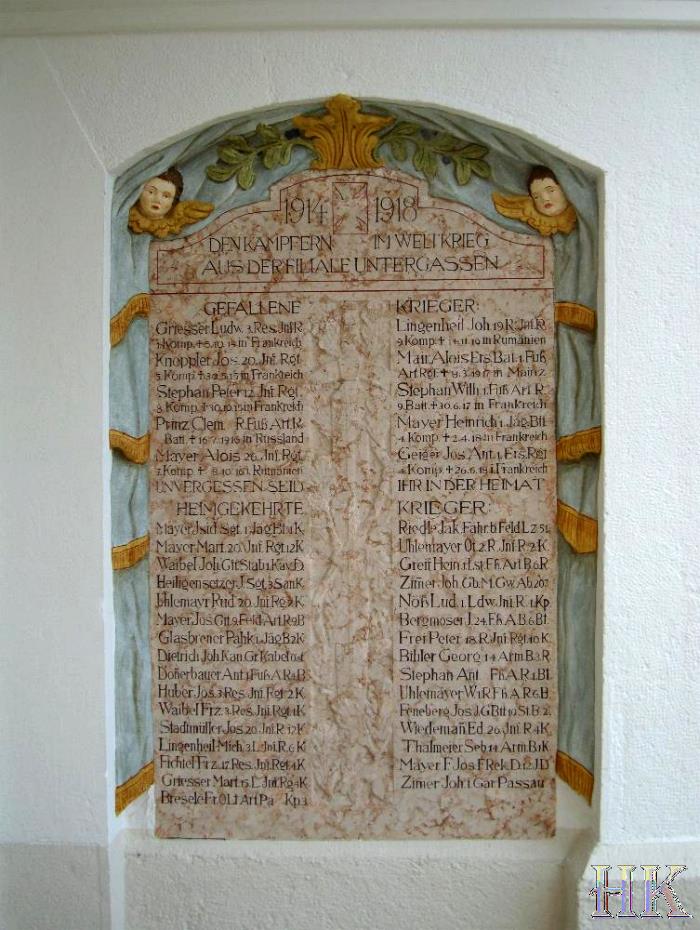 1914 1918
DEN KÄMPFERN IM WELTKRIEG
AUS DER FILIALE UNTERGASSEN
GEFALLENE KRIEGER:
Griesser Ludw. 3. Res. Jnf R.
Komp. † 5.10.14 in Frankreich
Knöppler Jos. 20. Jnf. Rgt.
Komp. † in Frankreich
Stephan Peter 12. Jnf Rgt.
8. Komp. † in Frankreich
Prinz Clem. R. Fuß Art. R.
Batt. † 16.7.1916 in Russland
Mayer Alois 26. Jnf. Rgt.
Komp. † 8.10.16 i. Rumänien
UNVERGESSEN SEID
Lingenheil Joh. 19 R. Jnf. R.
9 Komp. † in Rumänien
Mair Alois Ers. Bat. 1. Fuß
Art. Rgt. † 8.3.1917 in Mainz
Stephan Wilh. 1. Fuß Art. R.
9. Batt. † 30.6.17 in Frankreich
Mayer Heinrich 1. Jäg. Btl.
4 Komp. † 2.4.18 in Frankreich
Geiger Jos. Ant. 1. Ers. Rgt
Komp. † 26.6.18 i. Frankreich
IHR IN DER HEIMAT
HEIMGEKEHRTE KRIEGER:
Mayer Jsid. Sgt. 1. Jäg Bt. 1 K.
Mayer Mart. 20. Jnf. Rgt. 12 K
Waibel Joh. Gft. Stab 1. Kav. D.
Heiligensetzer J. Sgt. 3 San K.
Uhlemayr Rud. 20. Jnf. Rg. K
Mayer Jos. Gft. 9. Feld Art. R 9 B
Glasbrener Pahk. 1. Jäg B 2 K
Dietrich Joh. Kan. Gr. Kabel
Doferbauer Ant. 1. Fuß A R 4 B
Huber Jos. 3. Res. Jnf. Rgt. 2 K.
Waibel Frz. 3. Res. Jnf. Rgt. 1 K
Stadtmüller Jos. 20. Jnf. R. 12 K
Lingenheil Mich. 3. L. Jnf. R. 6 K
Fichtel Frz. 17. Res. Jnf. Rgt. 4 K
Griesser Mart. 15. L. Jnf. Rg. 4 K
Bresele Fr. O Lt. Art Pa Kp 3
Riedle Jak. Fahr. b. Feld Lz 51.
Uhlemayer Ot. 2. R. Jnf R. 2. K.
Greif Hein. 1. Lst. Fß. Art B 6 R
Zimer Joh. Gb. M. Gw. Ab 207.
Nöß Lud. 1. Ldw. Jnf R. 1. Kp.
Bergmoser J. 24. Fß. A B. 6 Bt.
Frei Peter 18. R. Jnf. Rgt. 10 K.
Bihler Georg 14 Arm B 3 R.
Stephan Ant. Fß. A. R 1 Bt.
Uhlemayer W. 1 R Fß. A R 6 B.
Feneberg Jos. J. G Btt 10 St. B. 2.
Wiedeman Ed. 20. Jnf. R. 4 K.
Thalmeier Seb. 14 Arm. B. 1 K
Mayer F. Jos. F Rek. D 12 J D
Zimer Joh. 1 Gar Passau
HK